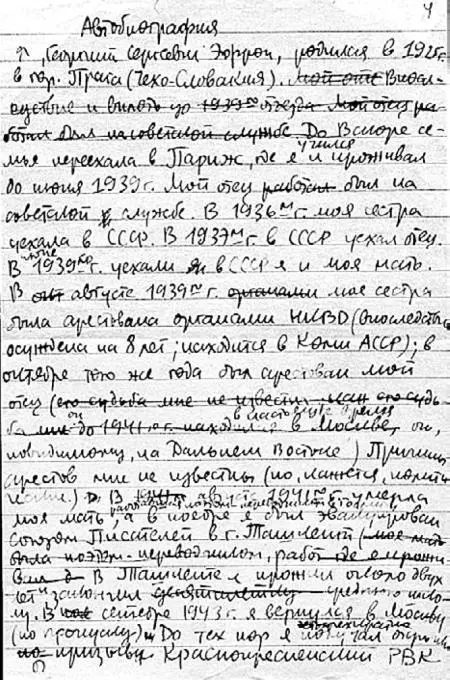 4
Автобиография
Я, Георгий Сергеевич Эфрон, родился в 1925г.
в гор. Прага (Чехо-Словакия). Мой оте Впосл-
едствие и вплоть до 1939го отъезда Мой отец ра-
ботал был на советской службе До Вскоре се-
учился
мья переехала в Париж, где я и проживал
до июня 1939г. Мой отец работал был на
советской службе. В 1936м г. моя сестра
уехала в СССР. В 1937м г. в СССР уехал отец.
июне
В 1939го г. уехали в СССР я и моя мать.
В августе 1939го г. органами моя сестра
была арестована органами НКВД (впоследств.
осуждена на 8 лет; находится в Коми АССР); в
октябре того же года был арестован мой
отец (его судьба мне не известн
он в настоящее время
ба мне до 1941го г. находился в Москве, он,
повидимому, на Дальнем Востоке) Причины
арестов мне не известны (но, кажется, полити-
ческие.) В августе 1941го г. умерла
моя мать, а в ноябре я был эвакуирован
Союзом Писателей в г. Ташкент (моя мать
была поэтом-переводчиком, работ где я прожи-
В Ташкенте я прожил около двух
лет и закончил десятилетку среднюю шко-
лу. В сентябре 1943г. я вернулся в Москву
(по пропуску) До тех пор я получал отсрочк
по призыву Краснопресненский РВК